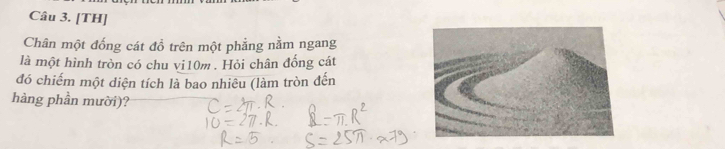 Câu 3. [TH]
Chân một đống cát đổ trên một phẳng nằm ngang
là một hình tròn có chu vi10m. Hỏi chân đống cát
đó chiếm một diện tích là bao nhiêu (làm tròn đến
hàng phần mười)?
C = 2π.R.
10 = 2π.R.
R = 5.
S = π.R²
S = 25π. ≈79.